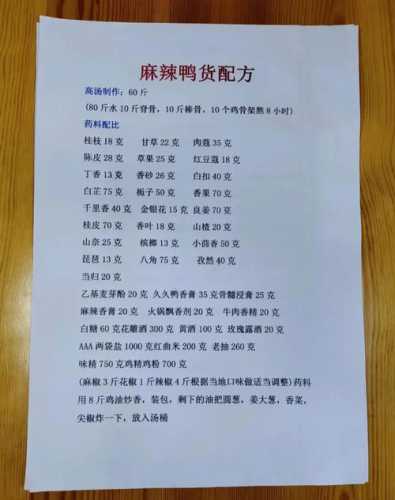 麻辣鸭货配方
高汤制作：60 斤
(80 斤水 10 斤脊骨，10 斤棒骨、10 个鸡骨架熬 8 小时)
药料配比
桂枝 18 克 甘草 22 克 肉蔻 35 克
陈皮 28 克 草果 25 克 红豆蔻 18 克
丁香 13 克 香砂 26 克 白扣 40 克
白芷 75 克 栀子 50 克 香果 70 克
千里香 40 克 金银花 15 克 良姜 70 克
桂皮 70 克 香叶 18 克 山楂 20 克
山奈 25 克 槟榔 13 克 小茴香 50 克
琵琶 13 克 八角 75 克 孜然 40 克
当归 20 克
乙基麦芽酚 20 克 久久鸭香膏 35 克骨髓浸膏 25 克
麻辣香膏 20 克 火锅飘香剂 20 克 牛肉香精 20 克
白糖 60 克花雕酒 300 克 黄酒 100 克 玫瑰露酒 20 克
AAA 两袋盐 1000 克红曲米 200 克 老抽 260 克
味精 750 克鸡精鸡粉 700 克
(麻椒 3 斤花椒 1 斤辣椒 4 斤根据当地口味做适当调整)药料
用 8 斤鸡油炒香，装包，剩下的油把圆葱，姜大葱，香菜，
尖椒炸一下，放入汤桶